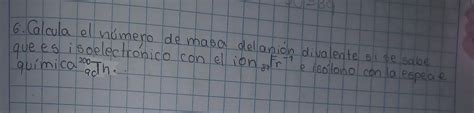 6. Calcula el número de masa del anión divalente si se sabe
que es isoelectrónico con el ión ₈₇Fr⁻¹ e isótono con la especie
química ²⁰⁰₉₀Th.